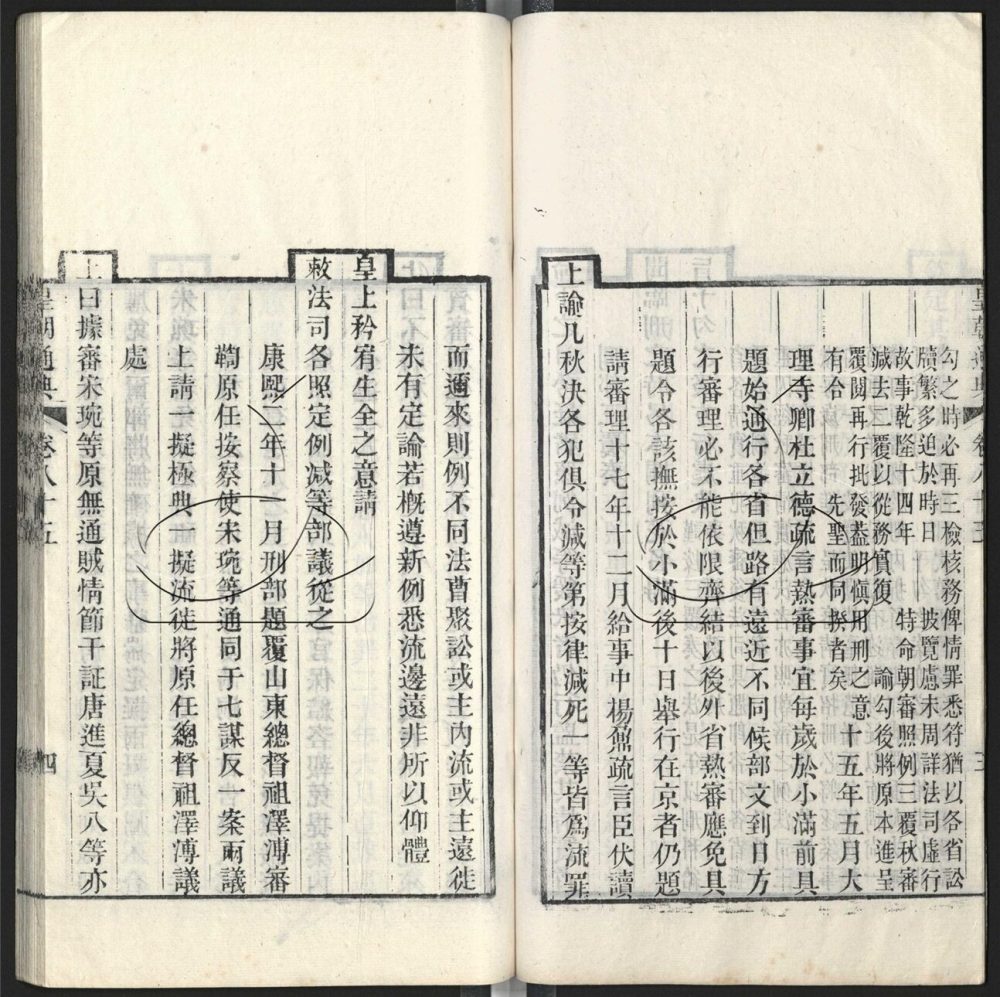 皇朝通典 卷八十五 三
勾之時必再三檢核務俾情罪悉符猶以各省訟
牘繁多迫於時日 披覽慮未周詳法司虛行
故事乾隆十四年 特命朝審照例三覆秋審
減去二覆以從務實復 諭勾後將原本進呈
覆閱再行批發葢明愼用刑之意
有合 先聖而同揆者矣 十五年五月大
理寺卿杜立德疏言熱審事宜每歲於小滿前具
題始通行各省但路有遠近不同候部文到日方
行審理必不能依限齊結以後外省熱審應免具
題令各該撫按於小滿後十日舉行在京者仍題
請審理十七年十二月給事中楊鼐疏言臣伏讀
上諭凡秋決各犯俱令減等第按律減死一等皆爲流罪
而邇來則例不同法曹聚訟或主內流或主遠徙
未有定論若槪遵新例悉流邊遠非所以仰體
皇上矜宥生全之意請
敕法司各照定例減等部議從之
康熙二年十一月刑部題覆山東總督祖澤溥審
鞫原任按察使宋琬等通同于七謀反一案兩議
上請一擬極典一擬流徙將原任總督祖澤溥議
處
上曰據審宋琬等原無通賊情節干証唐進夏吳八等亦
皇朝通典 卷八十五 四